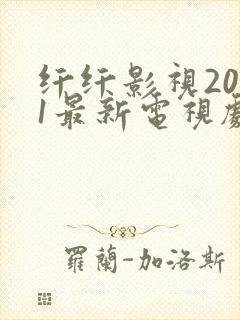 纤纤影視20
1最新電視劇
羅蘭-加洛斯